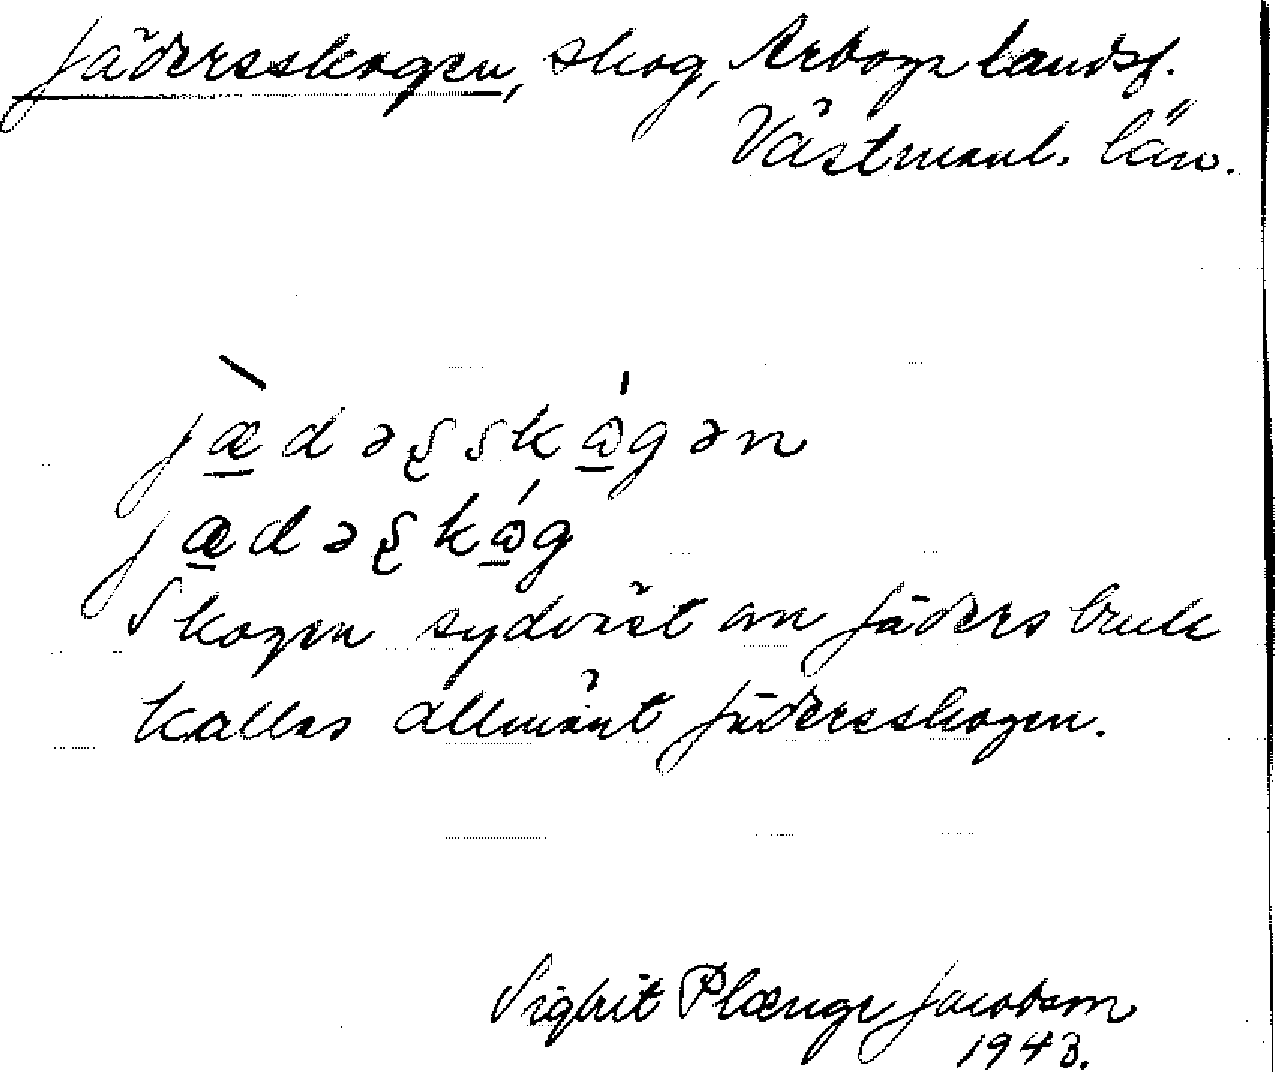 Jädersskogen, skog, Arboga landsf.
Västmanl. län.
jæ̀dəʂskɷ́gən
jædəʂkɷ́g
Skogen sydväst om Jäders bruk
kallas allmänt Jädersskogen.
Sigbrit Plænge Jacobson
1943.